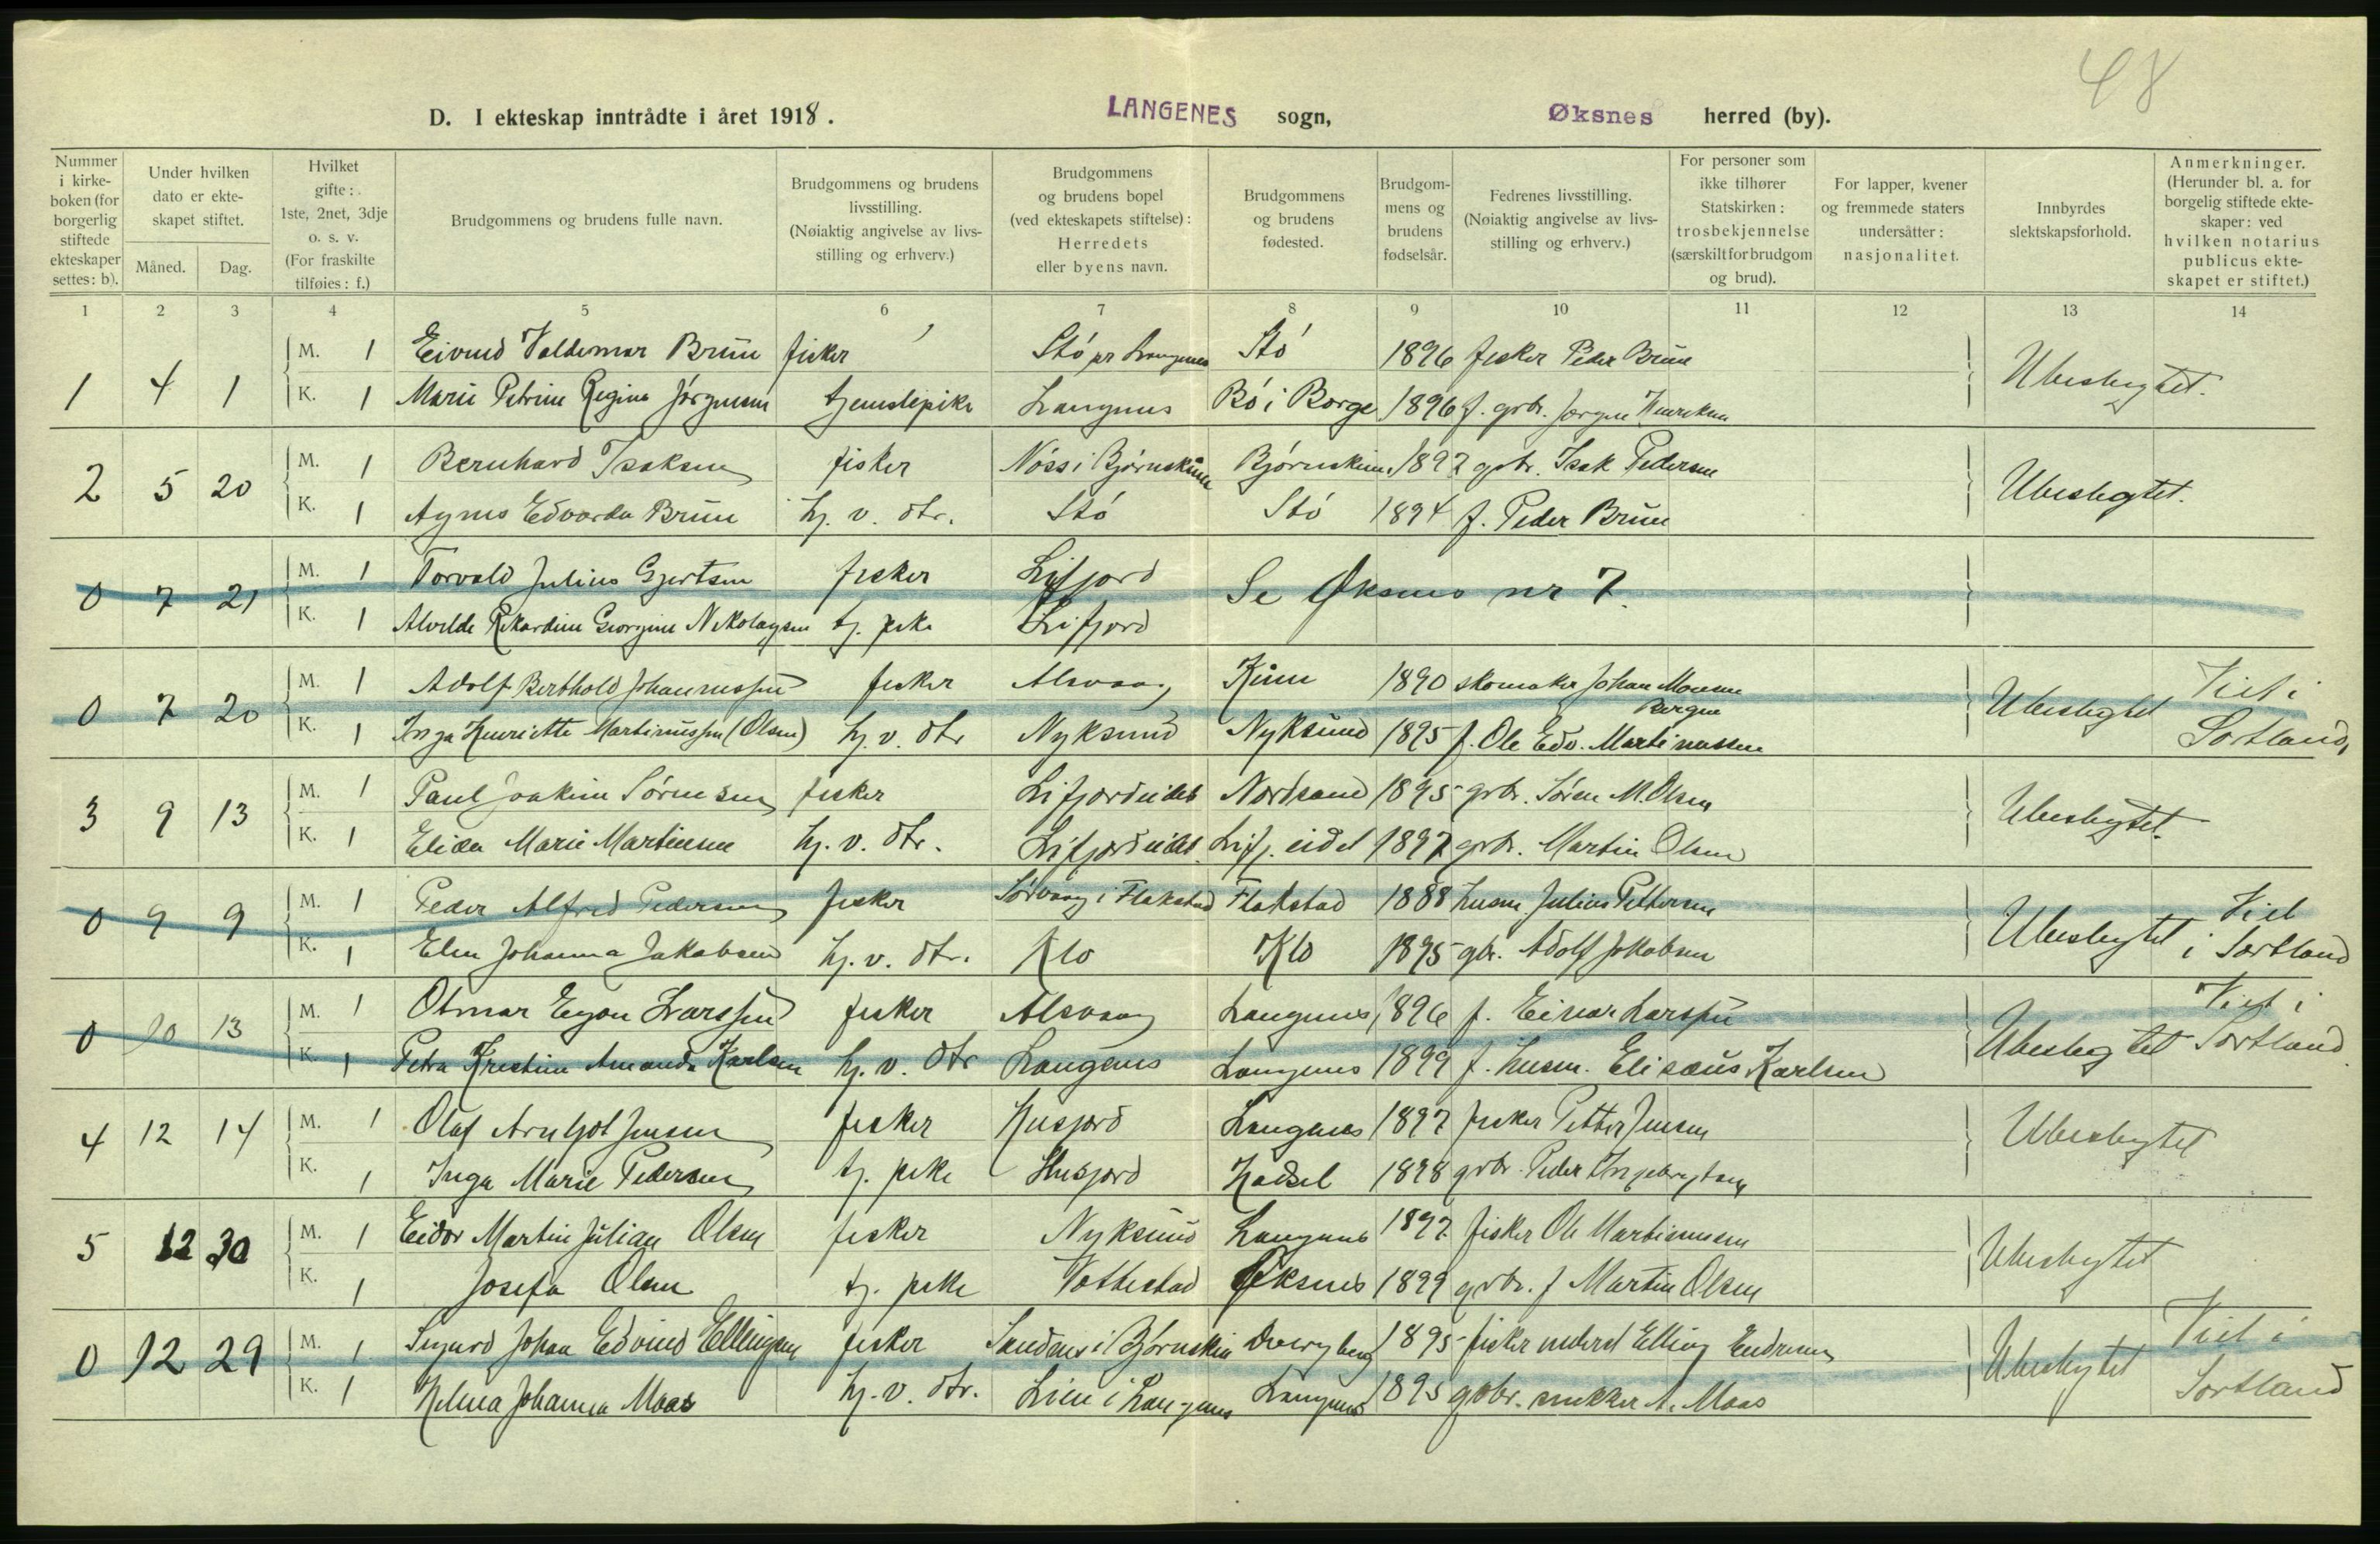 48
D. I ekteskap inntrådte i året 1918. LANGENES sogn, Øksnes herred (by).
Nummer i kirkeboken (for borgerlig stiftede ekteskaper settes: b).
Under hvilken dato er ekteskapet stiftet.
Måned. Dag.
Hvilket gifte: 1ste, 2net, 3dje o. s. v. (For fraskilte tilføies: f.)
Brudgommens og brudens fulle navn.
Brudgommens og brudens livsstilling. (Nøiaktig angivelse av livsstilling og erhverv.)
Brudgommens og brudens bopel (ved ekteskapets stiftelse): Herredets eller byens navn.
Brudgommens og brudens fødested.
Brudgommens og brudens fødselsår.
Fedrenes livsstilling. (Nøiaktig angivelse av livsstilling og erhverv.)
For personer som ikke tilhører Statskirken: trosbekjennelse (særskilt for brudgom og brud).
For lapper, kvener og fremmede staters undersåtter: nasjonalitet.
Innbyrdes slektskapsforhold.
Anmerkninger. (Herunder bl. a. for borgelig stiftede ekteskaper: ved hvilken notarius publicus ekteskapet er stiftet.)
1 2 3 4 5 6 7 8 9 10 11 12 13 14
M. 1 Eivind Valdemar Brun fisker Stø pr Langenes Stø 1896 fisker Peder Brun
1 4 1 Ubeslegtet.
K. 1 Marie Petrine Regine Jørgensen tjenestepike Langenes Bø i Borge 1896 f. grbr. Jørgen Henriksen
M. 1 Bernhard Isaksen fisker Nøss i Bjørnskinn Bjørnskinn 1892 gbr. Isak Pedersen
2 5 20 Ubeslegtet.
K. 1 Agnes Edvarda Brun hj. v. dtr. Stø Stø 1894 f. Peder Brun
M. 1 Torvald Julius Gjertsen fisker Lifjord
0 7 21 Se Øksnes nr 7.
K. 1 Alvilde Rikardine Georgine Nikolaysen tj. pike Lifjord
M. 1 Adolf Berthold Johannessen fisker Alsvaag Kinn 1890 skomaker Johan Monsen Bergen
0 7 20 Ubeslegtet Viet i Sortland,
K. 1 Inga Henriette Martinussen (Olsen) hj. v. dtr Nyksund Nyksund 1895 f. Ole Edv. Martinussen
M. 1 Paul Joakim Sørensen fisker Lifjordeidet Nordsand 1895 grbr. Søren M. Olsen
3 9 13 Ubeslegtet.
K. 1 Elida Marie Martinsen hj. v. dtr. Lifjordeidet Lifj. eidet 1897 grbr. Martin Olsen
M. 1 Peder Alfred Pedersen fisker Sørvaag i Flakstad Flakstad 1888 husm. Julius Pettersen
0 9 9 Ubeslegtet Viet i Sortland
K. 1 Elen Johanna Jakobsen hj. v. dtr. Klo Klo 1895 gbr. Adolf Jakobsen
M. 1 Otmar Egon Larssen fisker Alsvaag Langenes 1896 f. Einar Larssen
0 10 13 Ubeslegtet Viet i Sortland
K. 1 Petra Kristine Amanda Karlsen hj. v. dtr Langenes Langenes 1899 f. husm. Elisæus Karlsen
M. 1 Olaf Arnljot Jensen fisker Husjord Langenes 1897 fisker Petter Jensen
4 12 14 Ubeslegtet
K. 1 Inga Marie Pedersen tj. pike Husjord Hadsel 1898 grbr. Peder Ingebrigtsen
M. 1 Eidor Martin Julian Olsen fisker Nyksund Langenes 1897 fisker Ole Martinussen
5 12 30 Ubeslegtet
K. 1 Josefa Olsen tj. pike Vottestad Øksnes 1899 grbr. f Martin Olsen
M. 1 Sigurd Johan Edvind Ellingsen fisker i Bjørnskin Dvergberg 1895 fisker Elling Endresen
0 12 29 Ubeslegtet Viet i Sortland
K. 1 Helma Johanna Maas hj. v. dtr. i Langenes Langenes 1895 gbr. snekker A. Maas